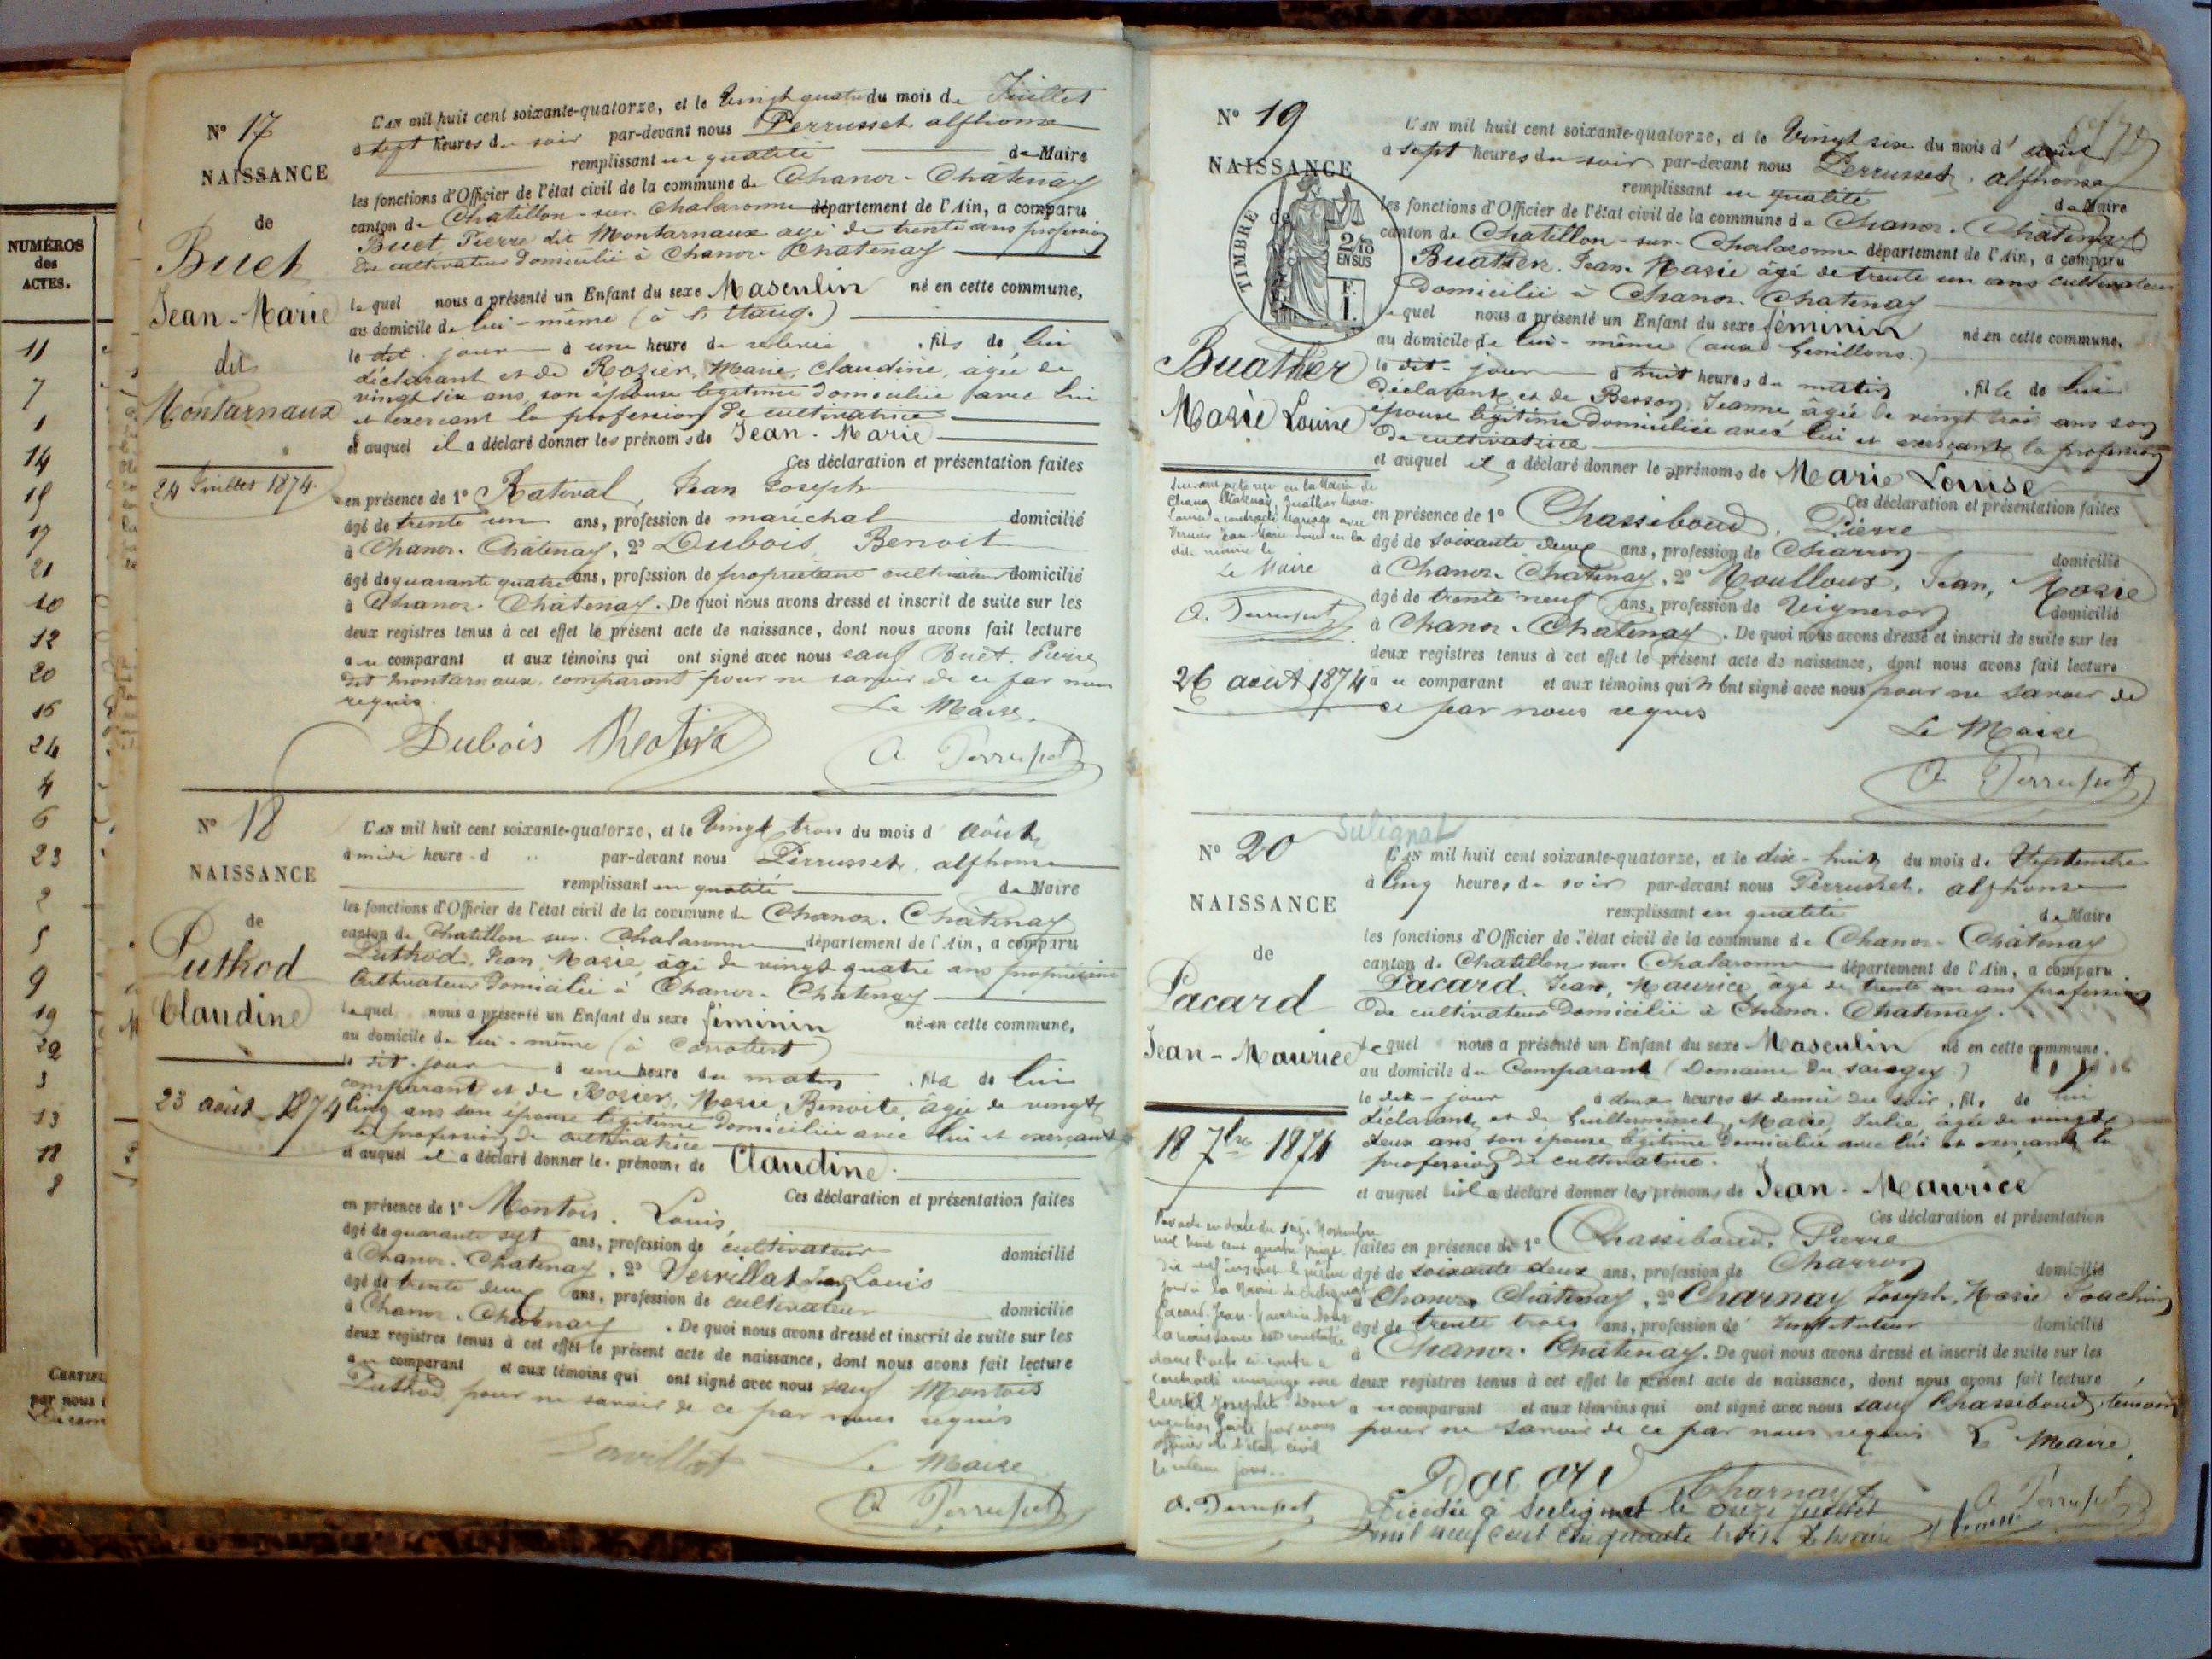 NUMÉROS
des
ACTES.
11
7
1
14
15
17
21
10
12
20
16
24
4
6
23
2
5
9
19
22
3
13
18
8
par nous
N° 17
NAISSANCE
de
Buet
Jean-Marie
dit
Montarnaux
24 Juillet 1874.
L'AN mil huit cent soixante-quatorze, et le vingt quatre du mois de Juillet
à sept heures du soir par-devant nous Perrusset alphonse
remplissant en qualité de Maire
les fonctions d'Officier de l'état civil de la commune de Chanoz-Châtenay
canton de Chatillon-sur-Chalaronne département de l'Ain, a comparu
Buet Pierre dit Montarnaux agé de trente ans profession
de cultivateur domicilié à Chanoz Chatenay
lequel nous a présenté un Enfant du sexe Masculin né en cette commune,
au domicile de lui-même (à l'étang.)
le dit jour à une heure de relevée, fils de lui
déclarant et de Rozier, Marie, Claudine, agée de
vingt six ans, son épouse légitime domiciliée avec lui
et exerçant la profession de cultivatrice
et auquel il a déclaré donner les prénoms de Jean-Marie
Ces déclaration et présentation faites
en présence de 1° Ratival, Jean Joseph
âgé de trente un ans, profession de maréchal domicilié
à Chanoz-Châtenay, 2° Dubois Benoit
âgé de quarante quatre ans, profession de propriétaire cultivateur domicilié
à Chanoz-Châtenay. De quoi nous avons dressé et inscrit de suite sur les
deux registres tenus à cet effet le présent acte de naissance, dont nous avons fait lecture
au comparant et aux témoins qui ont signé avec nous sauf Buet, Pierre
dit montarnaux, comparant pour ne savoir de ce par nous
requis.
Le Maire,
Dubois
A Perrusset
N° 18
NAISSANCE
de
Puthod
Claudine
23 août 1874
L'AN mil huit cent soixante-quatorze, et le vingt trois du mois d'août
à midi heure d par-devant nous Perrusset, alphonse
remplissant en qualité de Maire
les fonctions d'Officier de l'état civil de la commune de Chanoz-Châtenay
canton de Chatillon-sur-Chalaronne département de l'Ain, a comparu
Puthod, Jean Marie âgé de vingt quatre ans propriétaire
Cultivateur domicilié à Chanoz-Chatenay
lequel nous a présenté un Enfant du sexe féminin né en cette commune,
au domicile de lui-même
le dit jour à une heure du matin, fille de lui
comparant et de Rozier, Marie, Benoite, âgée de vingt
cinq ans son épouse légitime domiciliée avec lui et exerçant
la profession de cultivatrice
et auquel il a déclaré donner le prénom de Claudine.
Ces déclaration et présentation faites
en présence de 1° Montois, Louis,
âgé de quarante sept ans, profession de cultivateur domicilié
à Chanoz-Chatenay, 2° Vervillat Jean Louis
âgé de trente deux ans, profession de cultivateur domicilié
à Chanoz-Chatenay. De quoi nous avons dressé et inscrit de suite sur les
deux registres tenus à cet effet le présent acte de naissance, dont nous avons fait lecture
au comparant et aux témoins qui ont signé avec nous sauf Montois
Puthod pour ne savoir de ce par nous requis
Le Maire
A Perrusset
N° 19
NAISSANCE
de
TIMBRE
2/10
EN SUS
F.
1.
Buathier
Marie Louise
Le Maire
A. Perrusset
26 août 1874
L'AN mil huit cent soixante-quatorze, et le vingt six du mois d'août
à sept heures du soir par-devant nous Perrusset, alphonse
remplissant en qualité de Maire
les fonctions d'Officier de l'état civil de la commune de Chanoz-Châtenay
canton de Chatillon-sur-Chalaronne département de l'Ain, a comparu
Buathier, Jean-Marie âgé de trente un ans cultivateur
domicilié à Chanoz-Chatenay
lequel nous a présenté un Enfant du sexe féminin né en cette commune,
au domicile de lui-même
le dit jour à huit heures du matin, fille de lui
déclarant et de Besson, Jeanne âgée de vingt trois ans son
épouse légitime domiciliée avec lui et exerçant la profession
de cultivatrice
et auquel il a déclaré donner les prénoms de Marie Louise
Ces déclaration et présentation faites
en présence de 1° Chassiboud, Pierre
âgé de soixante deux ans, profession de Charron domicilié
à Chanoz-Chatenay, 2° Moulloux, Jean, Marie
âgé de trente neuf ans, profession de Vigneron domicilié
à Chanoz-Chatenay. De quoi nous avons dressé et inscrit de suite sur les
deux registres tenus à cet effet le présent acte de naissance, dont nous avons fait lecture
au comparant et aux témoins qui n'ont signé avec nous pour ne savoir de
ce par nous requis
Le Maire
A Perrusset
N° 20
Sulignat
NAISSANCE
de
Pacard
Jean-Maurice
18 7bre 1874
L'AN mil huit cent soixante-quatorze, et le dix-huit du mois de Septembre
à cinq heures du soir par-devant nous Perrusset, alphonse
remplissant en qualité de Maire
les fonctions d'Officier de l'état civil de la commune de Chanoz-Châtenay
canton de Chatillon-sur-Chalaronne département de l'Ain, a comparu
Pacard, Jean, Maurice, âgé de trente un ans profession
de cultivateur domicilié à Chanoz-Chatenay.
lequel nous a présenté un Enfant du sexe Masculin né en cette commune,
au domicile du Comparant
le dit-jour à deux heures et demie du soir, fils de lui
déclarant et de Guillerminet, Marie, Julie, âgée de vingt
deux ans son épouse légitime domiciliée avec lui et exerçant la
profession de cultivatrice.
et auquel il a déclaré donner les prénoms de Jean-Maurice
Ces déclaration et présentation
faites en présence de 1° Chassiboud, Pierre
âgé de soixante deux ans, profession de Charron domicilié
à Chanoz Châtenay, 2° Charnay Joseph, Marie Joachim
âgé de trente trois ans, profession de Instituteur domicilié
à Chanoz-Châtenay. De quoi nous avons dressé et inscrit de suite sur les
deux registres tenus à cet effet le présent acte de naissance, dont nous avons fait lecture
au comparant et aux témoins qui ont signé avec nous sauf Chassiboud, témoin
pour ne savoir de ce par nous requis Le Maire,
Pacard
Charnay
A Perrusset
A. Perrusset
Décédé à Sulignat le onze juillet
mil neuf cent cinquante trois. Le Maire